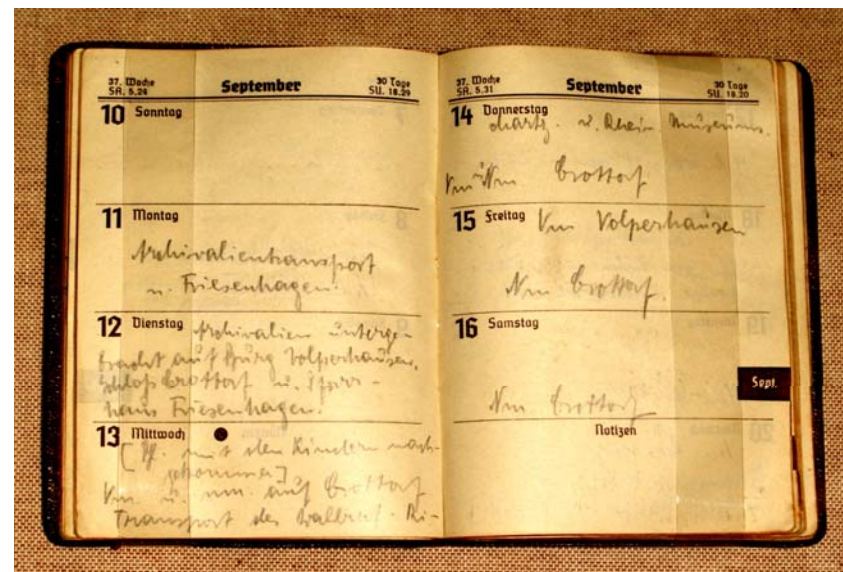 37. Woche
SA. 5.24
September
30 Tage
SU. 18.29
10 Sonntag
11 Montag
Archivalientransport
n. Friesenhagen.
12 Dienstag Archivalien unterge-
bracht auf Burg Volperhausen,
Schloß Crottorf u. Pfarr-
haus Friesenhagen.
13 Mittwoch
mit den Kindern nach-
gekommen]
Vm u. nm. auf Crottorf
Transport des Wallraf-Ri-
37. Woche
SA. 5.31
September
30 Tage
SU. 18.20
14 Donnerstag
chartz- u. Rhein. Museums.
Vm u Nm Crottorf
15 Freitag Vm Volperhausen
Nm Crottorf.
16 Samstag
Nm Crottorf
Sept.
Notizen